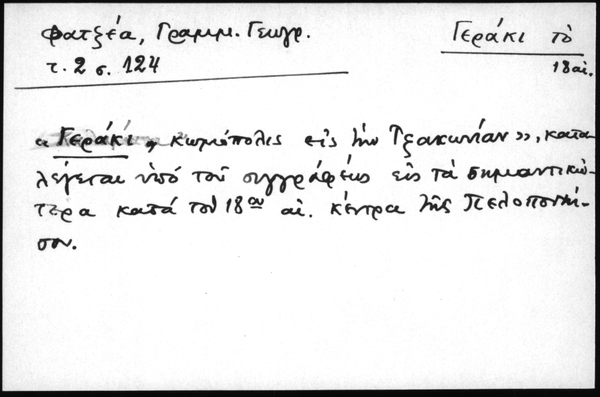 Φατζέα, Γραμμ. Γεωγρ.
τ. 2 σ. 124
Γεράκι τὸ
18 αἰ.
«Γεράκι, κωμόπολις εἰς τὴν Τζακωνίαν», κατα
λέγεται ὑπό τοῦ συγγραφέως εἰς τὰ σημαντικώ-
τερα κατά τον 18ον αἰ. κέντρα τῆς Πελοποννή-
σου.